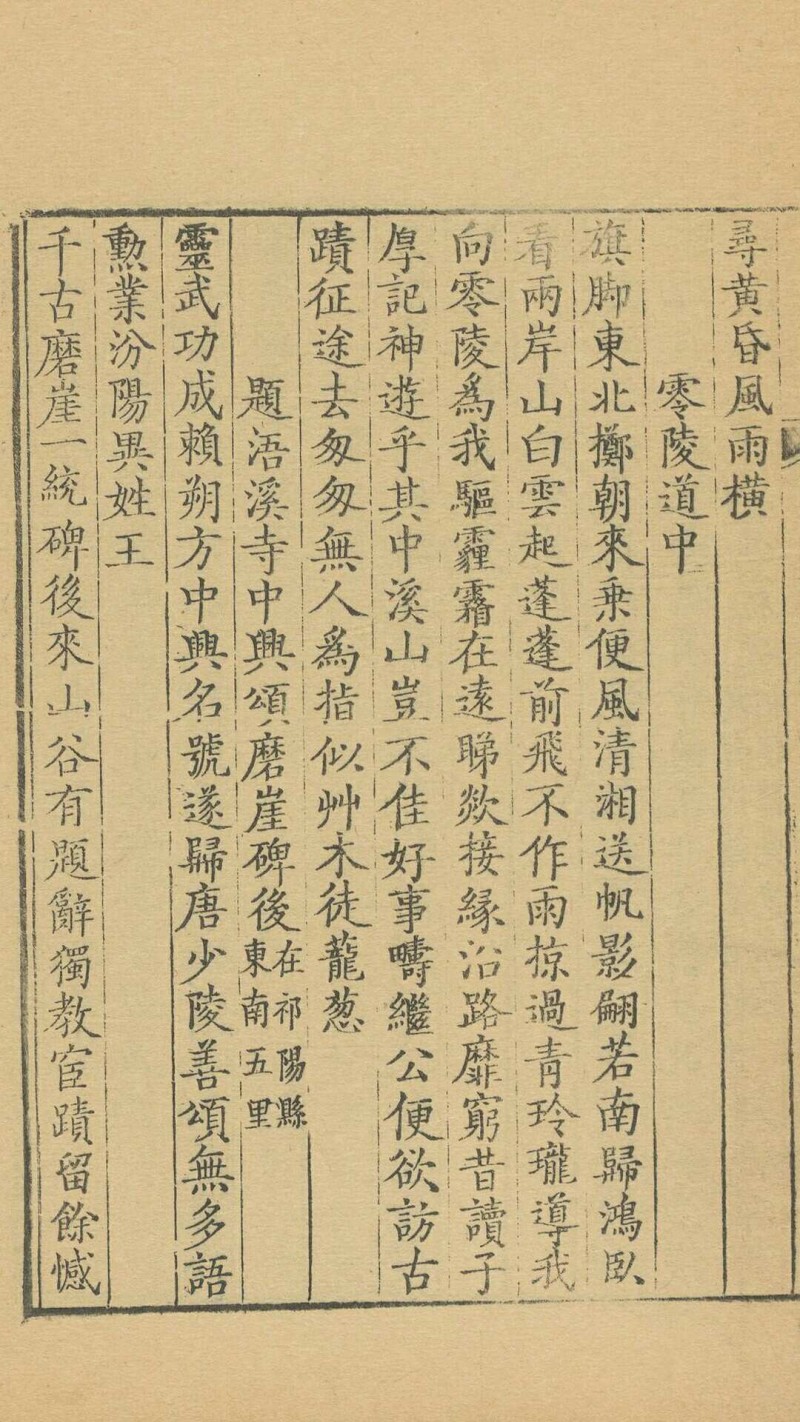 尋黃昏風雨橫
零陵道中
旗脚東北擲朝來乗便風清湘送帆影翩若南歸鴻臥
看兩岸山白雲起蓬蓬前飛不作雨掠過青玲瓏導我
向零陵為我驅霾霿在遠睇欻接緣沿路靡窮昔讀子
厚記神遊乎其中溪山豈不佳好事疇繼公便欲訪古
蹟征途去匆匆無人爲指似艸木徒蘢葱
題浯溪寺中興頌磨崖碑後在祁陽縣東南五里
靈武功成賴朔方中興名號遂歸唐少陵善頌無多語
勲業汾陽異姓王
千古磨崖一統碑後來山谷有題辭獨教宦蹟留餘憾